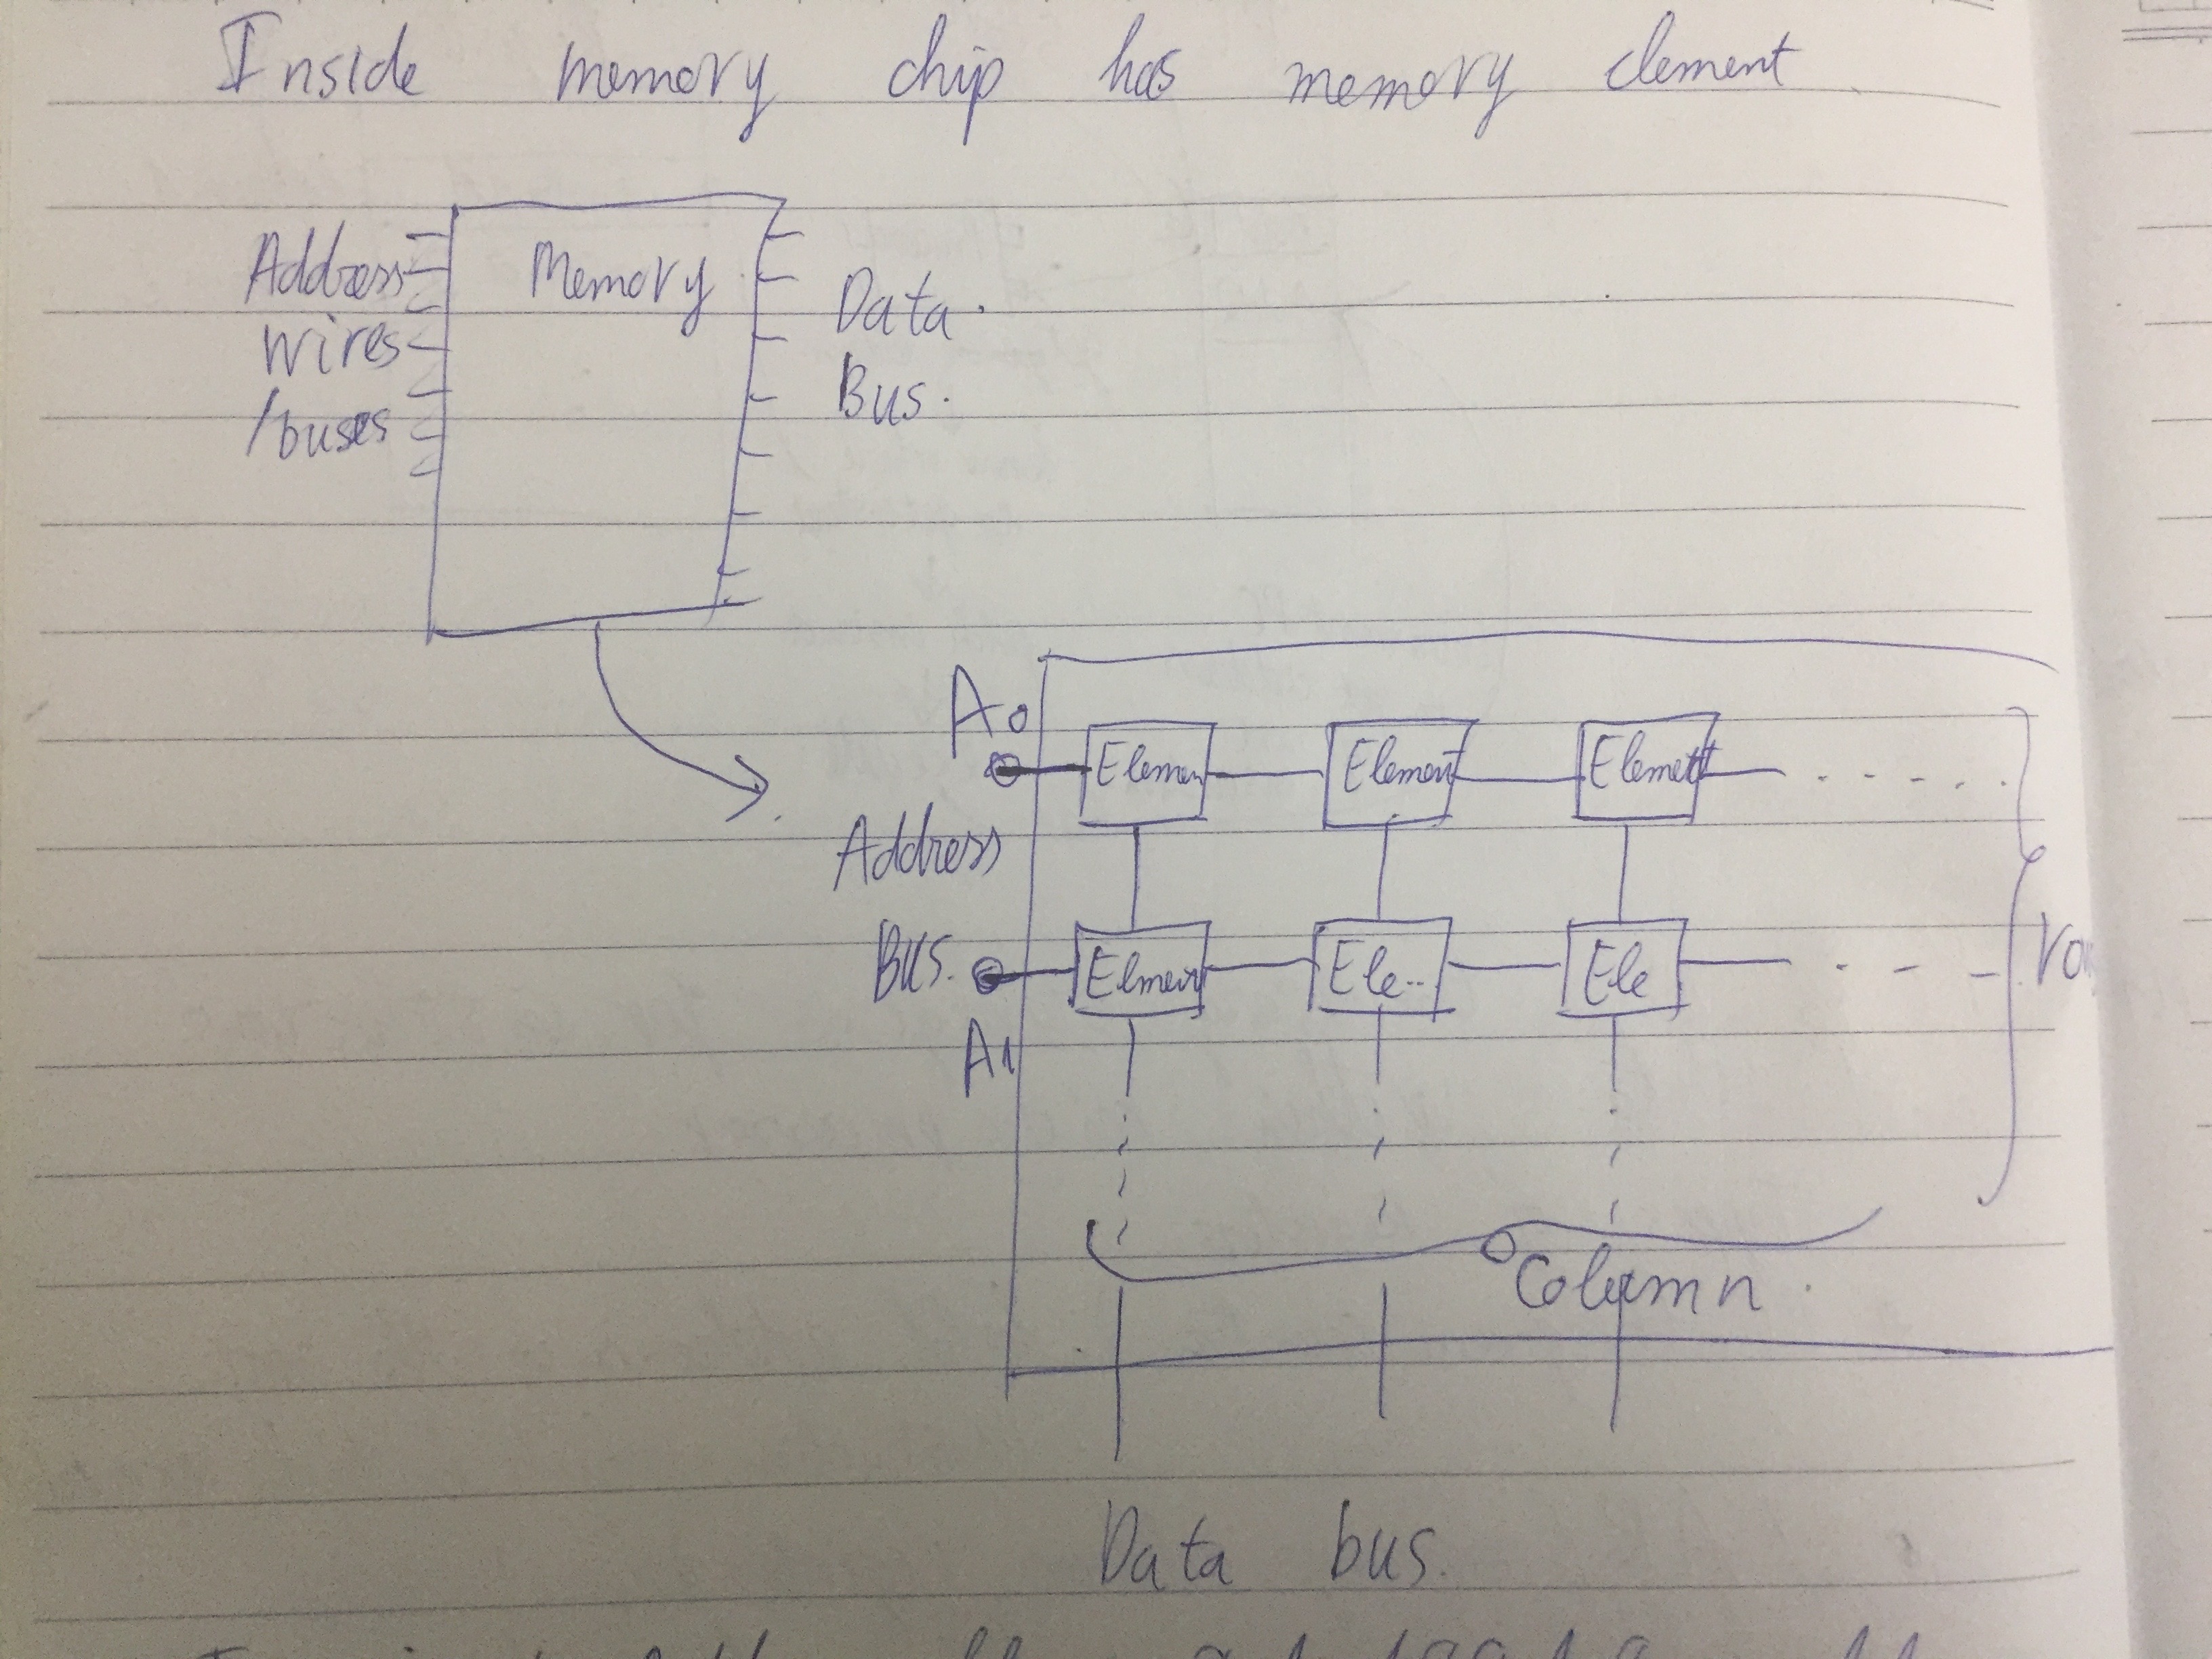 Inside memory chip has memory element
Memory
Address
wires
/buses
Data
Bus.
A0
Elemen
Element
Element
Address
Bus.
Elment
Ele..
Ele
A1
Column
Data bus.